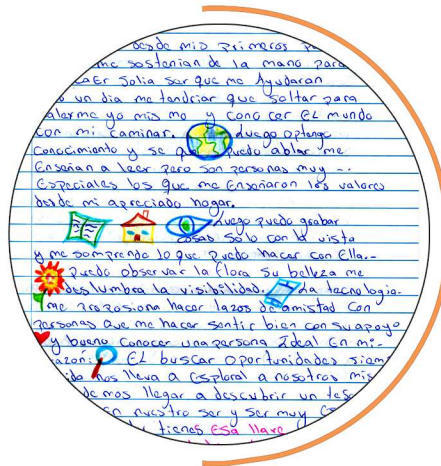 desde mis primeros
me sostenian de la mano para
caEr Solia Ser que me Ayudaran
un dia me tandriar que Soltar para
valerme yo mis mo y cono cer EL mundo
con mi caminar. Luego optengo
conocimiento y se que puedo ablar me
Enseñan a leer pero son personas muy -..
Especiales los que me Enseñaron los valores
desde mi apreciado hogar.
Luego puedo grabar
cosas Solo con la vista
y me somprendo lo que puedo hacer con Ella..-
puedo observar la flora Su belleza me
deslumbra la visibilidad. La tecnologia-
me proposiona hacer lazos de amistad con
personas que me hacer sentir bien con su apoyo
y bueno Conocer una persona Ideal En mi-
EL buscar oportunidades siem
nos lleva a Esploral a nosotros mis
demos llegar a descubrir un tes
en nuestro ser y ser muy
tienes ESa llave